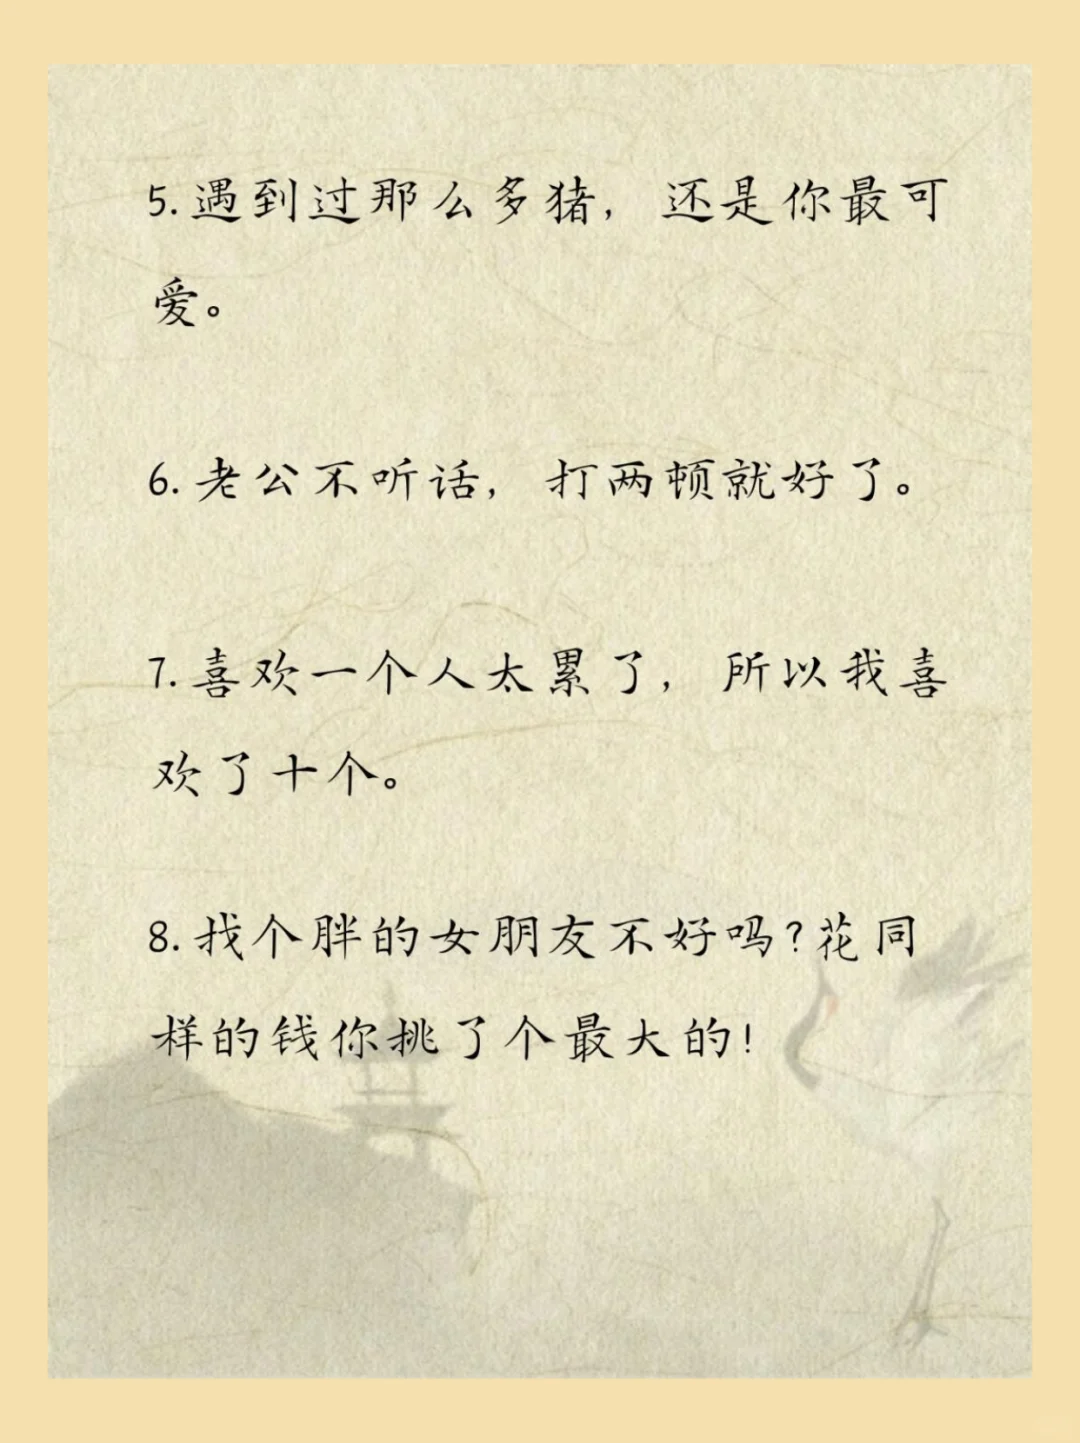 5.遇到过那么多猪，还是你最可
爱。
6.老公不听话，打两顿就好了。
7.喜欢一个人太累了，所以我喜
欢了十个。
8.找个胖的女朋友不好吗?花同
样的钱你挑了个最大的!